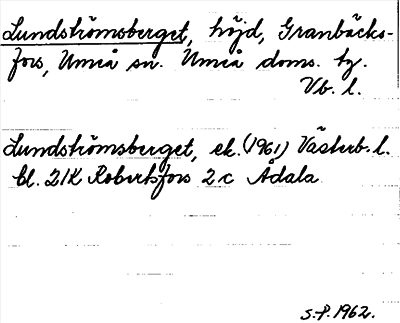 Lundströmsberget, höjd, Granbäcks-
fors, Umeå sn. Umeå doms. tg.
Vb. l.
Lundströmsberget, ek. (1961) Västerb. l.
bl. 21K Robertsfors 2 c Ådala
S.P. 1962.